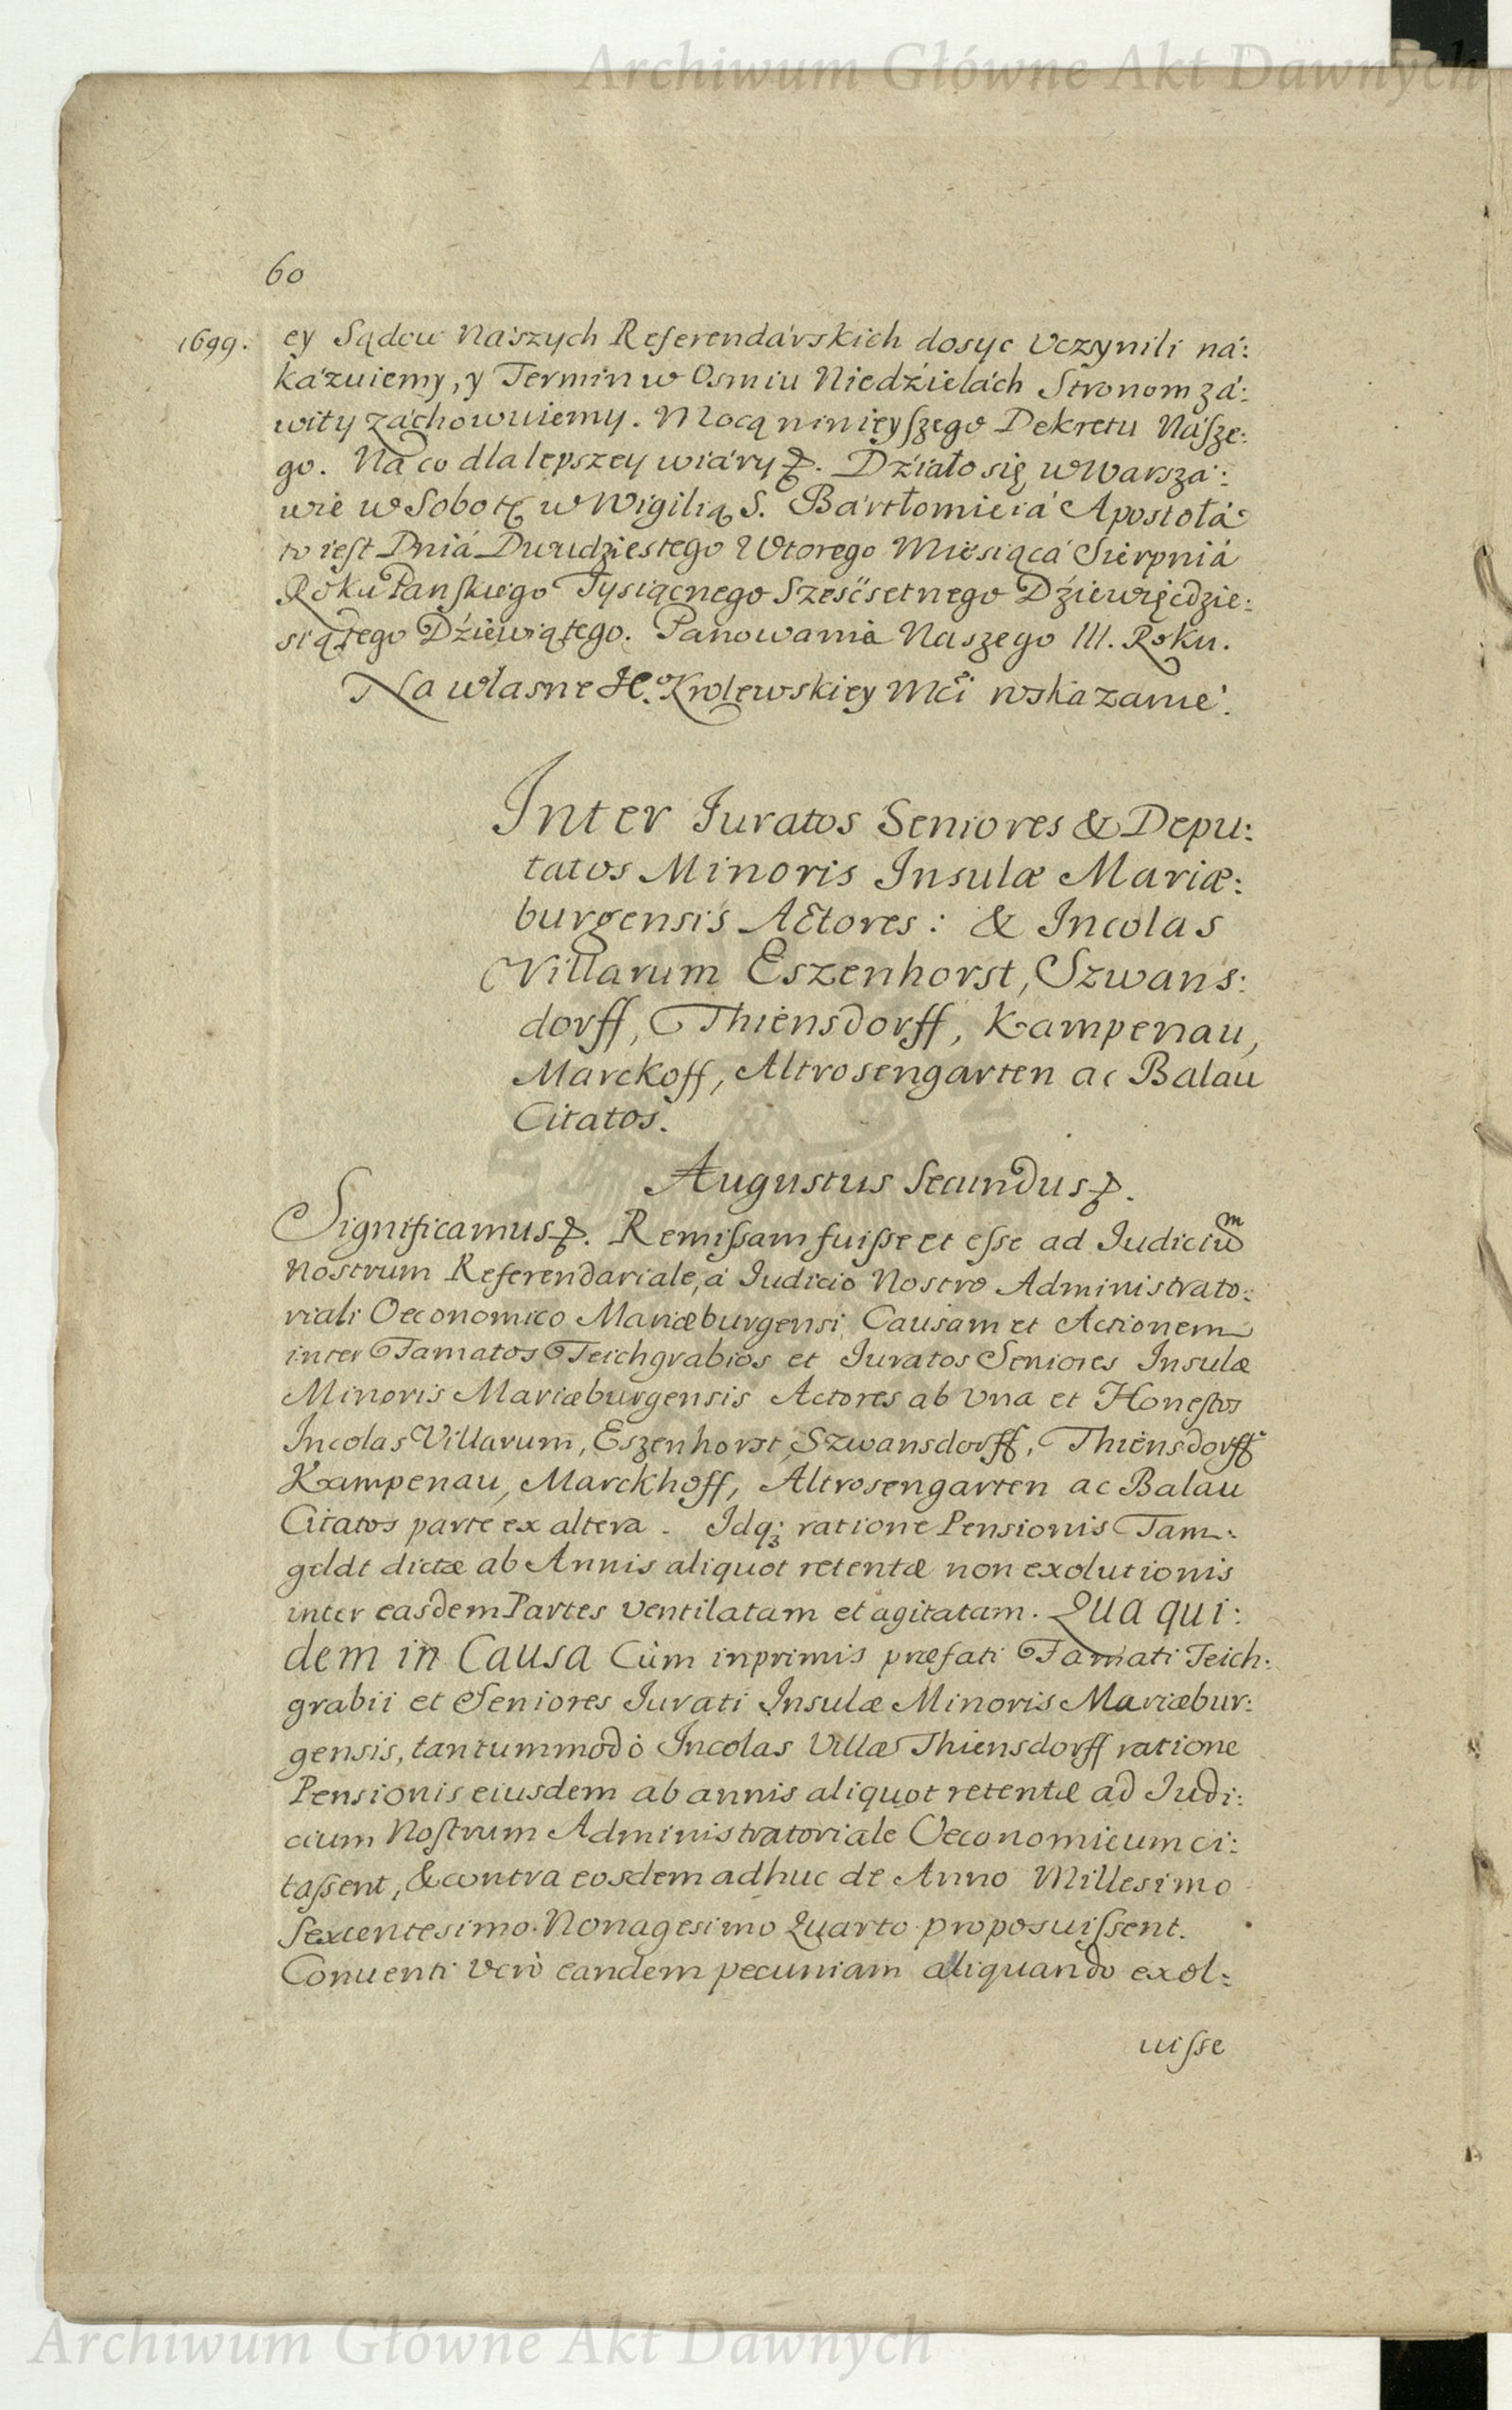 Archiwum Główne Akt Dawnych
60
1699. ey Sądow Nászych Referendárskich dosyc Vczynili ná:
kázuiemy, y Termin w Osmiu Niedźielách Stronom zá:
wity záchowuiemy. Mocą ninięyſzego Dekretu Náſze:
go. Ná co dla lepszey wiáry &. Dźiało się w Warszá:
wie w Sobotę w Wigilią S. Bártłomieiá Apostołá
to ieſt Dniá Dwudziestego Wtorego Miesiącá Sierpniá
Roku Panſkiego Tysiącnego Sześćsetnego Dźiewięćdzie:
siątego Dźiewiątego. Panowania Naszego III. Roku.
Na własne Je.º Krolewskiey Mći wskazanie.
Inter Iuratos Seniores & Depu:
tatos Minoris Insulæ Mariæ:
burgensis Actores: & Incolas
Villarum Eszenhorst, Szwans:
dorff, Thiensdorff, Kampenau,
Marckoff, Altrosengarten ac Balau
Citatos.
Augustus Secundus &.
Significamus &. Remiſsam fuiſse et eſse ad Iudiciũm
Nostrum Referendariale, à Iudicio Nostro Administrato:
riali Oeconomico Mariæburgensi Causam et Actionem
inter Tamatos Teichgrabios et Iuratos Seniores Insulæ
Minoris Mariæburgensis Actores ab Vna et Honeſtos
Incolas Villarum, Eszenhorst, Szwansdorff, Thiensdorff
Kampenau, Marckhoff, Altrosengarten ac Balau
Citatos parte ex altera. Idq; ratione Pensionis Tam:
geldt dictæ ab Annis aliquot retentæ non exolutionis
inter easdem Partes ventilatam et agitatam. Qua qui:
dem in Causa Cùm inprimis præfati Tamati Teich:
grabii et Seniores Iurati Insulæ Minoris Mariæbur:
gensis, tantummodò Incolas Villæ Thiensdorff ratione
Pensionis eiusdem ab annis aliquot retentæ ad Iudi:
cium Noſtrum Administratoriale Oeconomicum ci:
taſsent, & contra eosdem adhuc de Anno Millesimo
Sexcentesimo Nonagesimo Quarto proposuiſsent.
Conuenti verò eandem pecuniam aliquando exol:
uiſse
Archiwum Główne Akt Dawnych